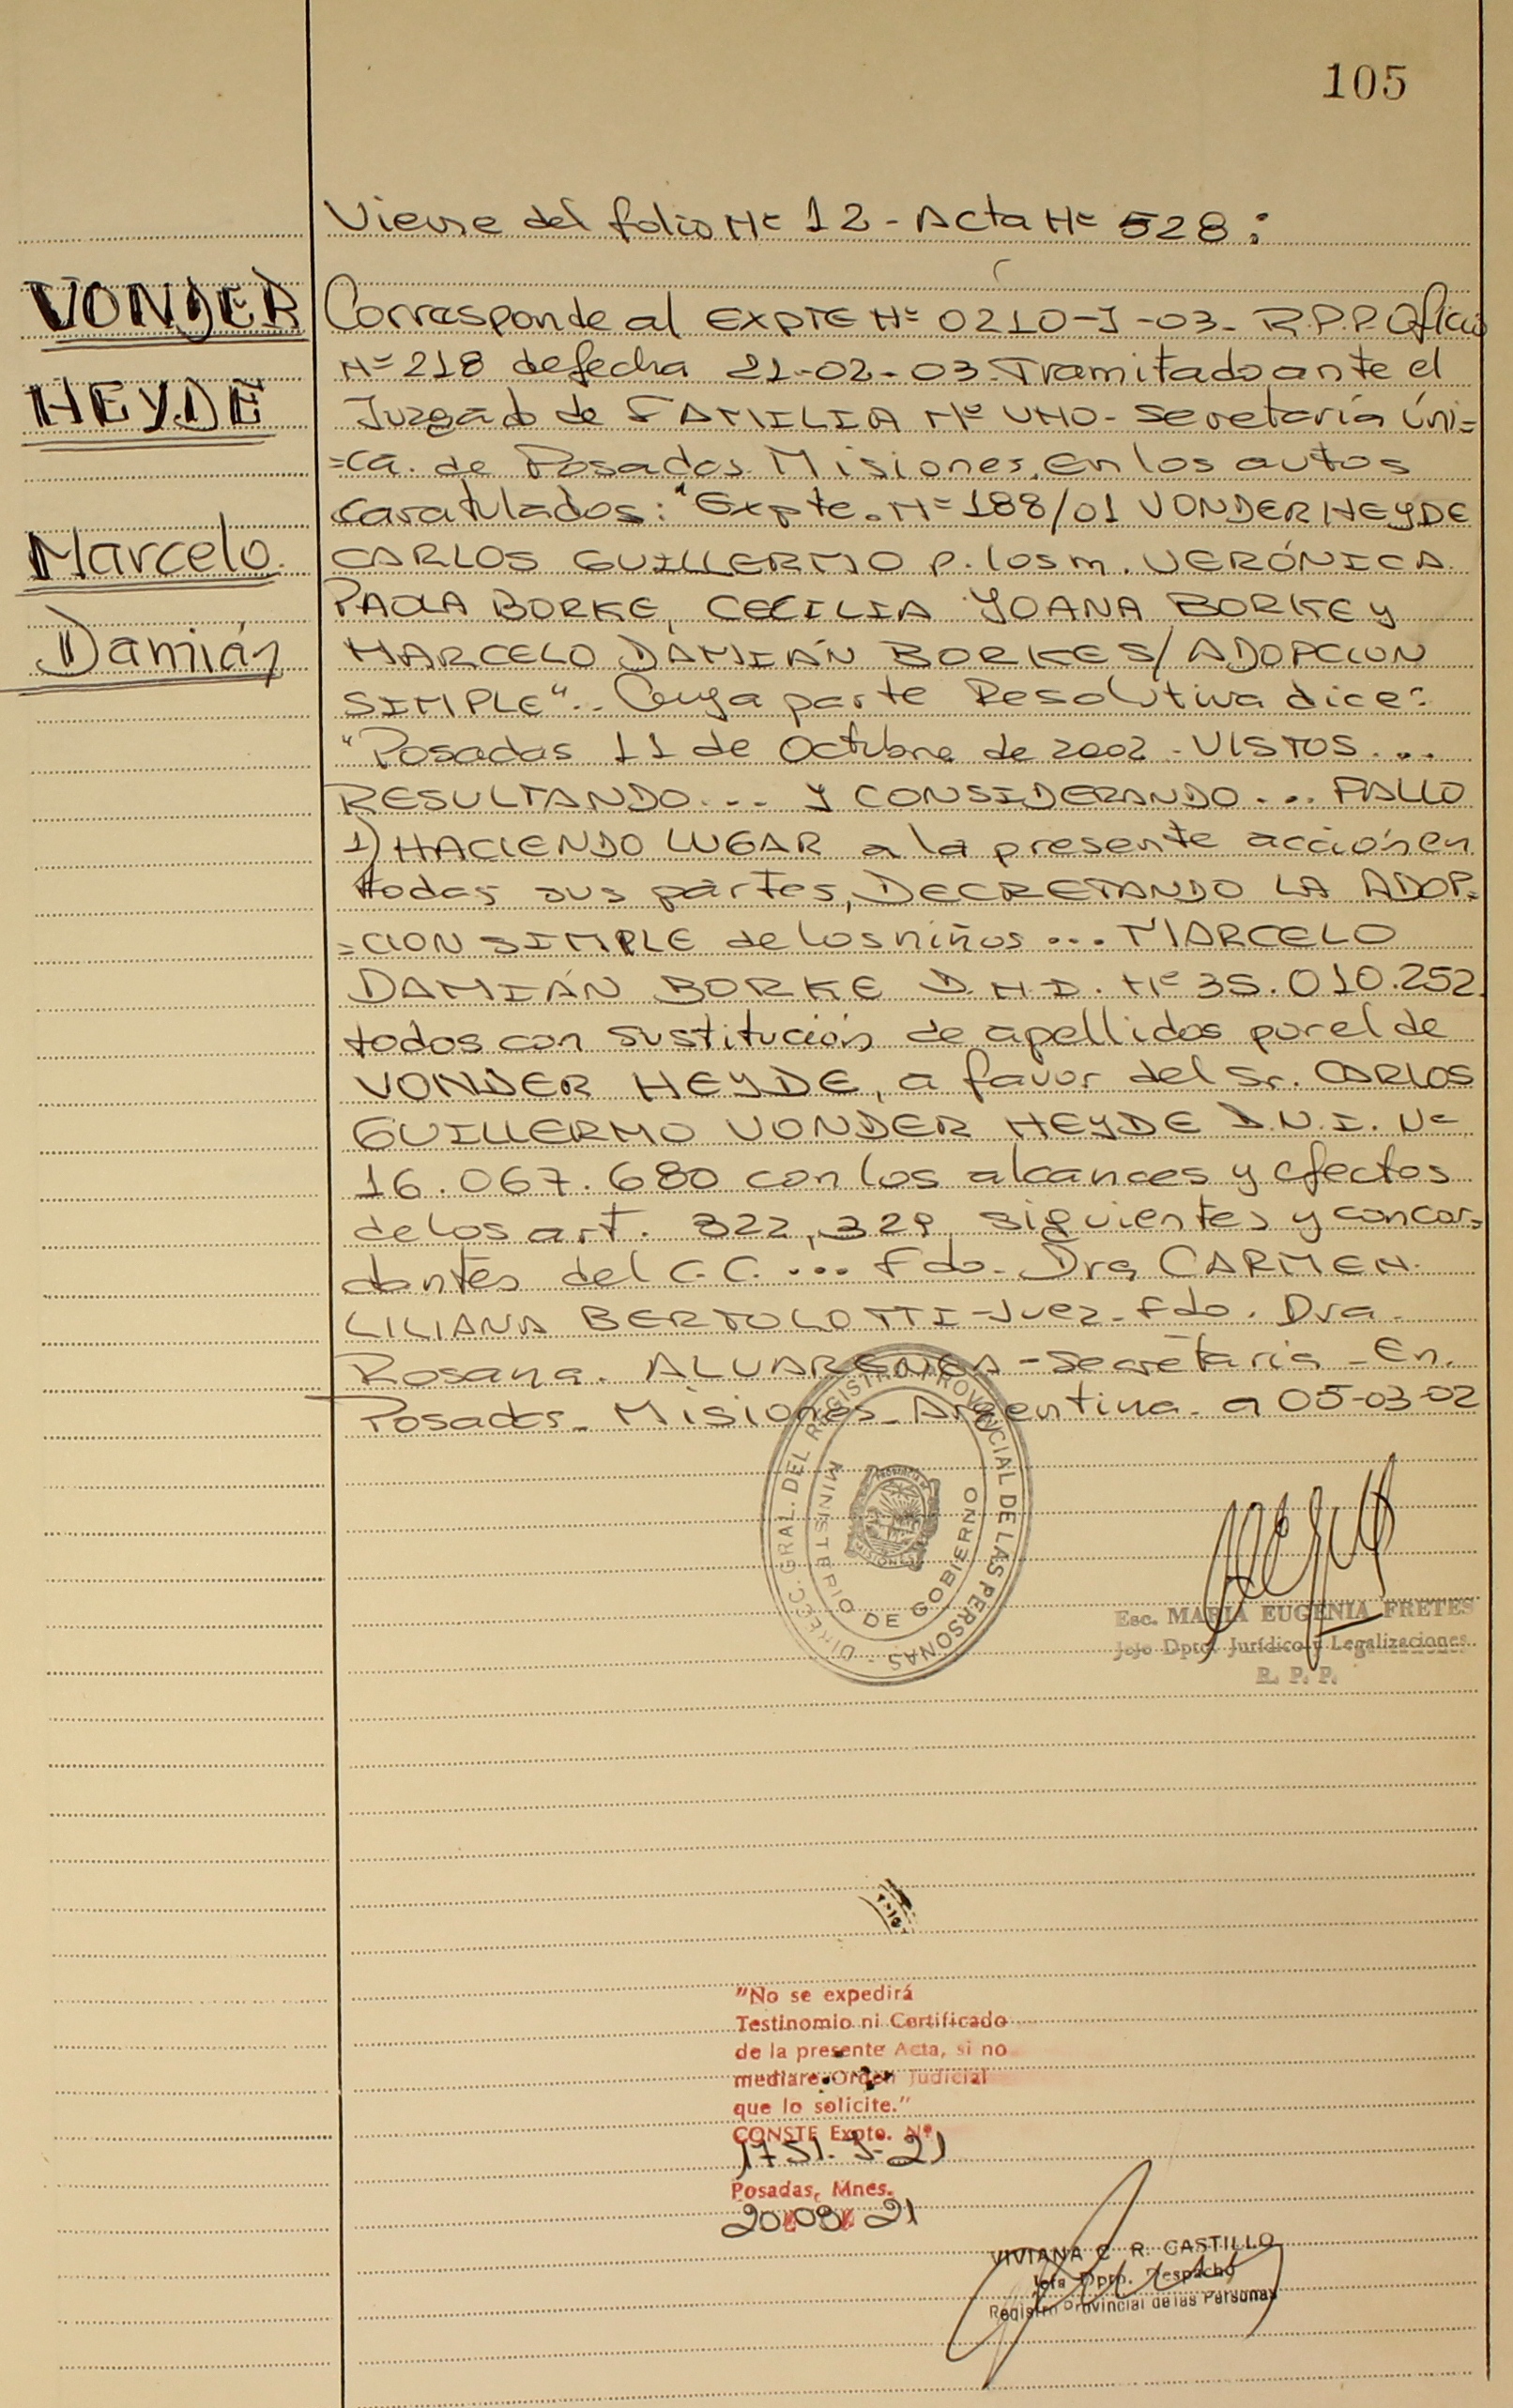 105
Viene del folio Nº 12 - Acta Nº 528:
VONDER
HEYDE
Marcelo
Damián
Corresponde al EXPTE Nº 0210-J-03- R.P.P. Oficio
Nº 218 de fecha 21-02-03. Tramitado ante el
Juzgado de FAMILIA Nº UNO - Secretaría Úni=
=ca. de Posadas Misiones, en los autos
caratulados: "Expte. Nº 188/01 VONDER HEYDE
CARLOS GUILLERMO p. los m. VERÓNICA
PAOLA BORKE, CECILIA YOANA BORKE y
MARCELO DAMIÁN BORKE S/ ADOPCION
SIMPLE".. Cuya parte Resolutiva dice:
"Posadas 11 de Octubre de 2002 - VISTOS...
RESULTANDO... Y CONSIDERANDO... FALLO
1) HACIENDO LUGAR a la presente acción en
todas sus partes, DECRETANDO LA ADOP=
=CION SIMPLE de los niños ... MARCELO
DAMIÁN BORKE D.N.I. Nº 35.010.252
todos con sustitución de apellidos por el de
VONDER HEYDE, a favor del Sr. CARLOS
GUILLERMO VONDER HEYDE D.N.I. Nº
16.067.680 con los alcances y efectos
de los art. 322, 329 siguientes y concor=
dantes del C.C. ... Fdo. Dra CARMEN
LILIANA BERTOLOTTI - Juez - Fdo. Dra.
Rosana. ALVARENGA - Secretaria - En.
Posadas - Misiones - Argentina - a 05-03-02
DIRECC. GRAL. DEL REGISTRO PROVINCIAL DE LAS PERSONAS -
MINISTERIO DE GOBIERNO
MISIONES
Esc. MARIA EUGENIA FRETES
Jefe Dpto. Jurídico y Legalizaciones
R. P. P.
"No se expedirá
Testinomio ni Certificado
de la presente Acta, si no
mediare Orden Judicial
que lo solicite."
CONSTE Expte. Nº
1751-J-21
Posadas, Mnes.
20 09 21
VIVIANA C R. CASTILLO
Jefa Dpto. Despacho
Registro Provincial de las Personas